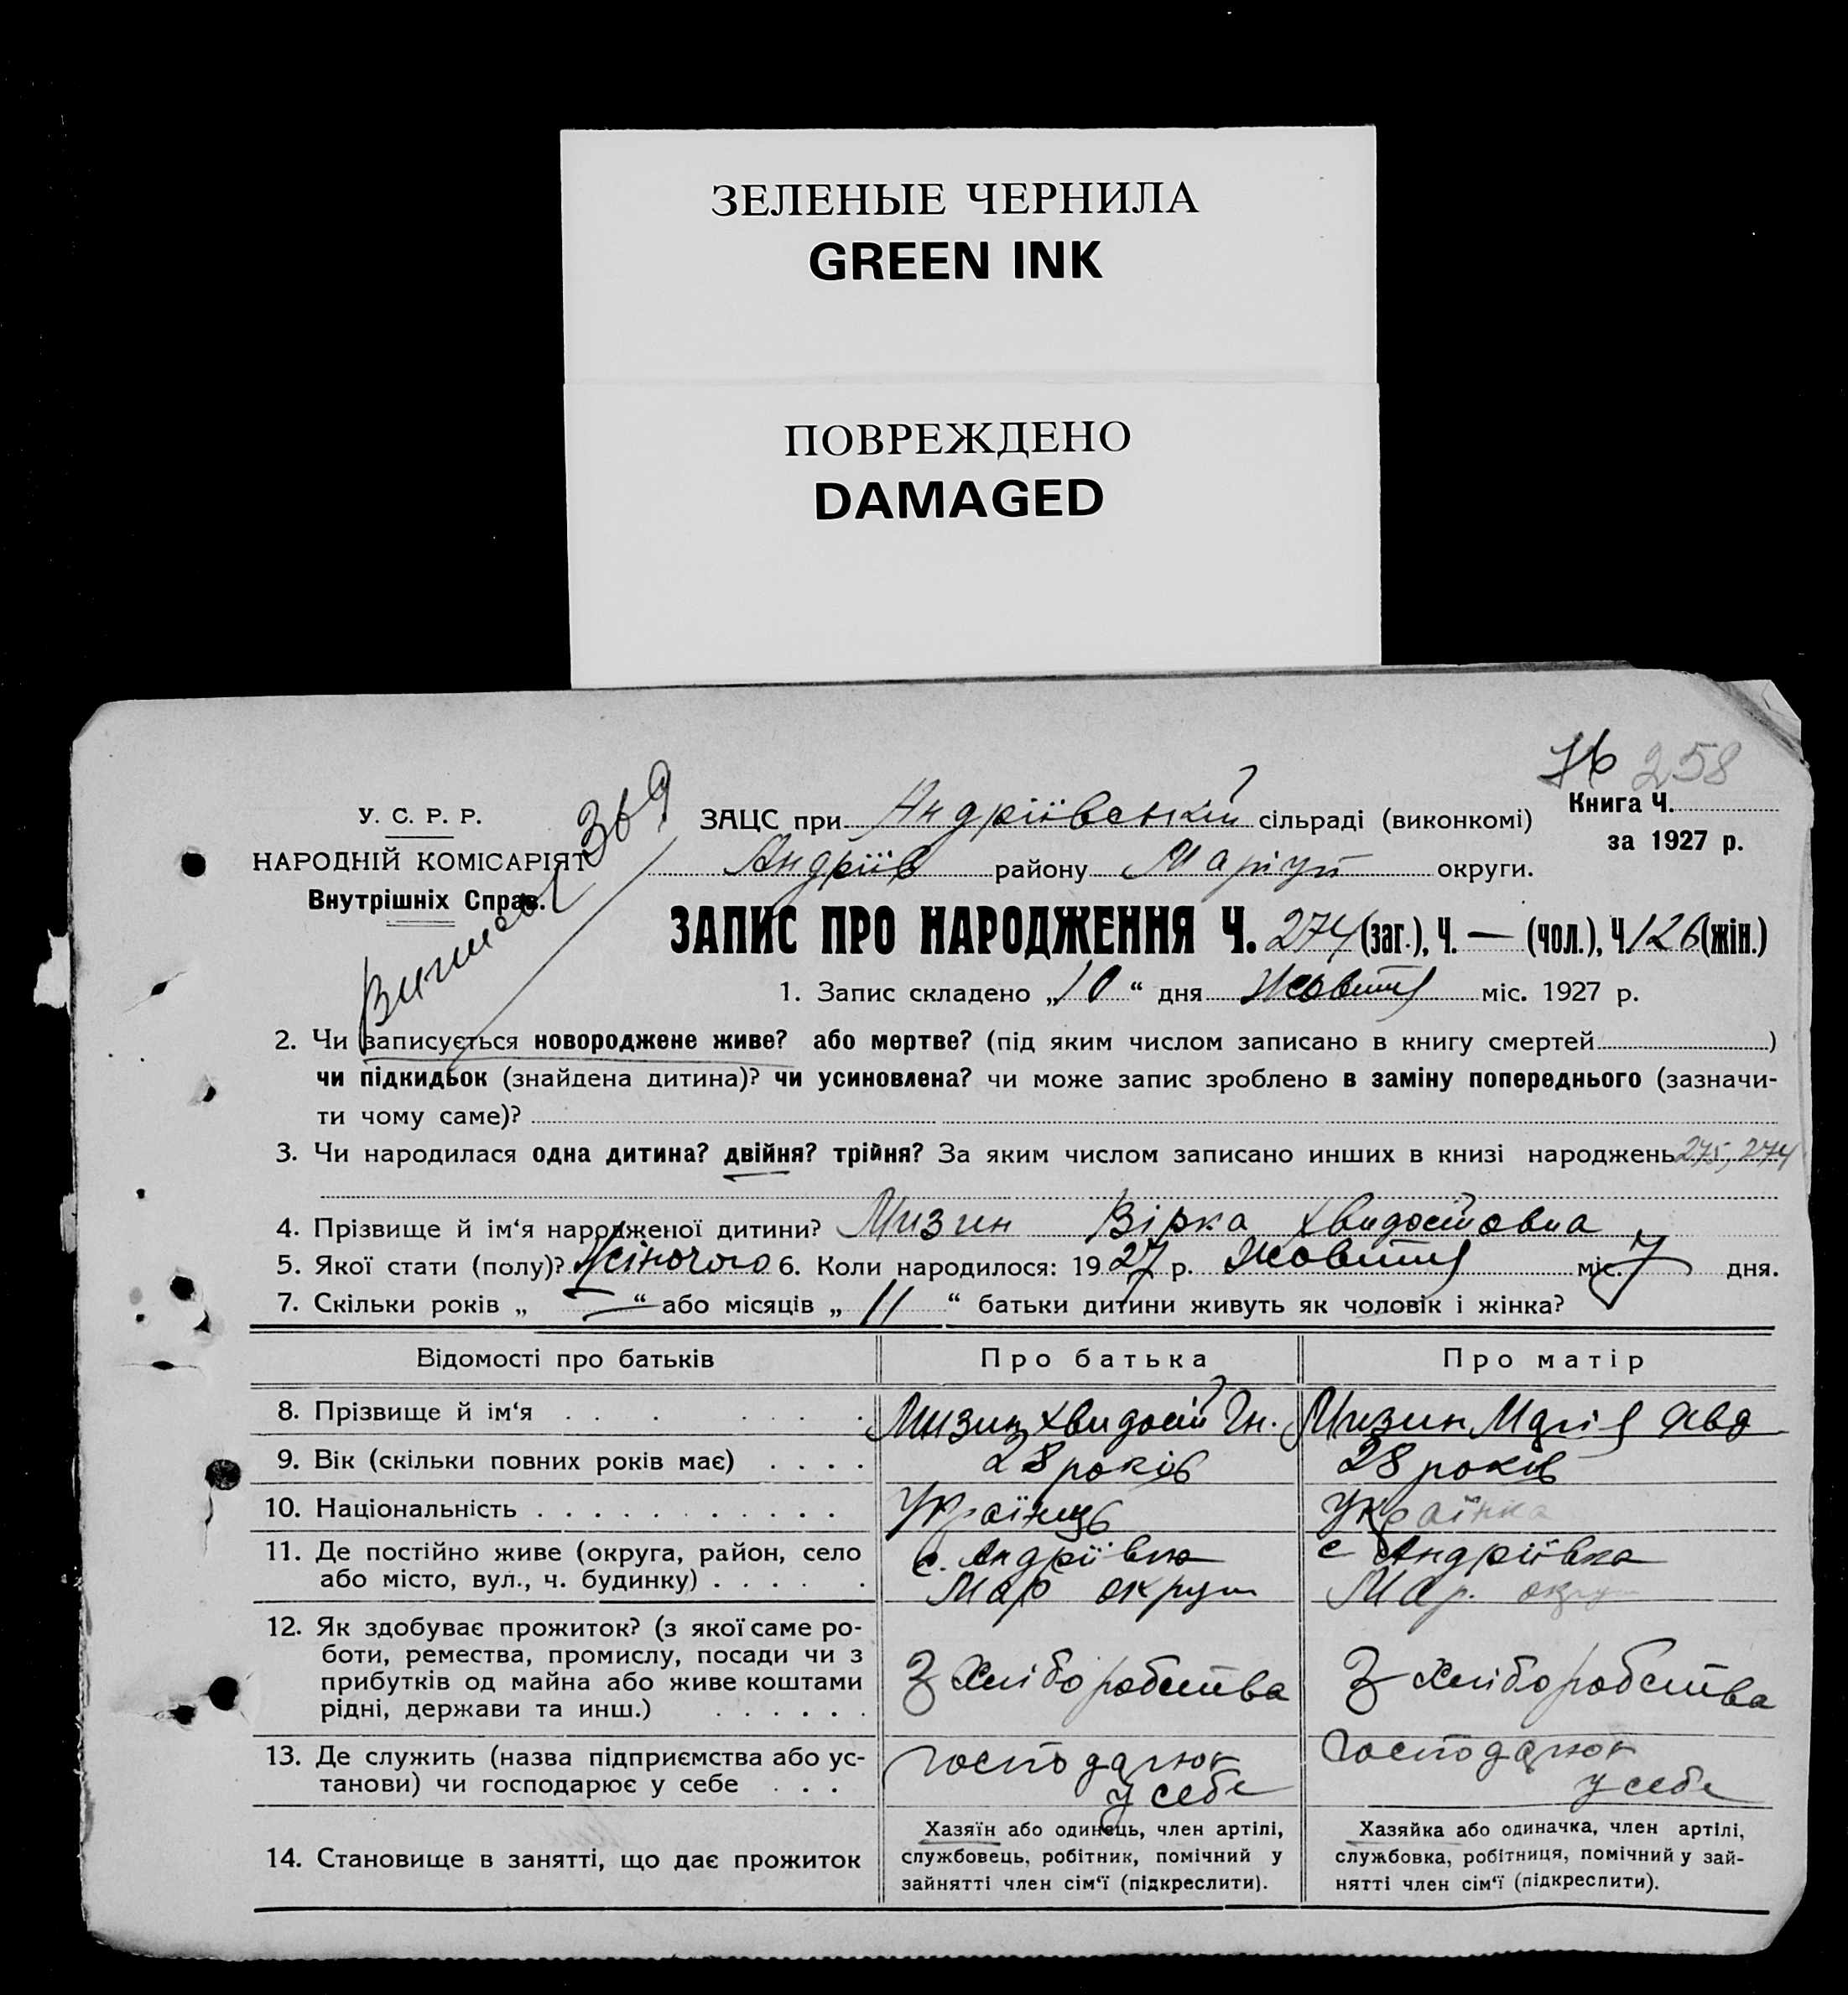 ЗЕЛЕНЫЕ ЧЕРНИЛА
GREEN INK
ПОВРЕЖДЕНО
DAMAGED
258
У. С. Р. Р.
НАРОДНІЙ КОМІСАРІЯТ
Внутрішніх Справ.
369
ЗАЦС при Андріївській сільраді (виконкомі)
Книга Ч.
за 1927 р.
Андріїв району Маріуп округи.
ЗАПИС ПРО НАРОДЖЕННЯ Ч. 274 (заг.), Ч. — (чол.), Ч. 126 (жін.)
1. Запис складено „10“ дня Жовтня міс. 1927 р.
2. Чи записується новороджене живе? або мертве? (під яким числом записано в книгу смертей)
чи підкидьок (знайдена дитина)? чи усиновлена? чи може запис зроблено в заміну попереднього (зазначи-
ти чому саме)?
3. Чи народилася одна дитина? двійня? трійня? За яким числом записано инших в книзі народжень 275, 274
4. Прізвище й ім‘я народженої дитини? Мизин Вірка Хвидостовна
5. Якої стати (полу)? Жіночого 6. Коли народилося: 1927 р. Жовтня міс. 7 дня.
7. Скільки років „ — “ або місяців „ 11 “ батьки дитини живуть як чоловік і жінка?
Відомості про батьків Про батька Про матір
8. Прізвище й ім‘я Мизин Хвидост Гн. Мизин Марія Явд
9. Вік (скільки повних років має) 28 років 28 років
10. Національність Українець Українка
11. Де постійно живе (округа, район, село с. Андріївка с Андріївка
або місто, вул., ч. будинку) Мар округи Мар. округи
12. Як здобуває прожиток? (з якої саме ро-
боти, ремества, промислу, посади чи з
прибутків од майна або живе коштами
рідні, держави та инш.) З Хліборобства З Хліборобства
13. Де служить (назва підприємства або ус-
танови) чи господарює у себе у себе у себе
14. Становище в занятті, що дає прожиток
Хазяїн або одинець, член артілі,
службовець, робітник, помічний у
зайнятті член сім‘ї (підкреслити).
Хазяйка або одиначка, член артілі,
службовка, робітниця, помічний у зай-
нятті член сім‘ї (підкреслити).